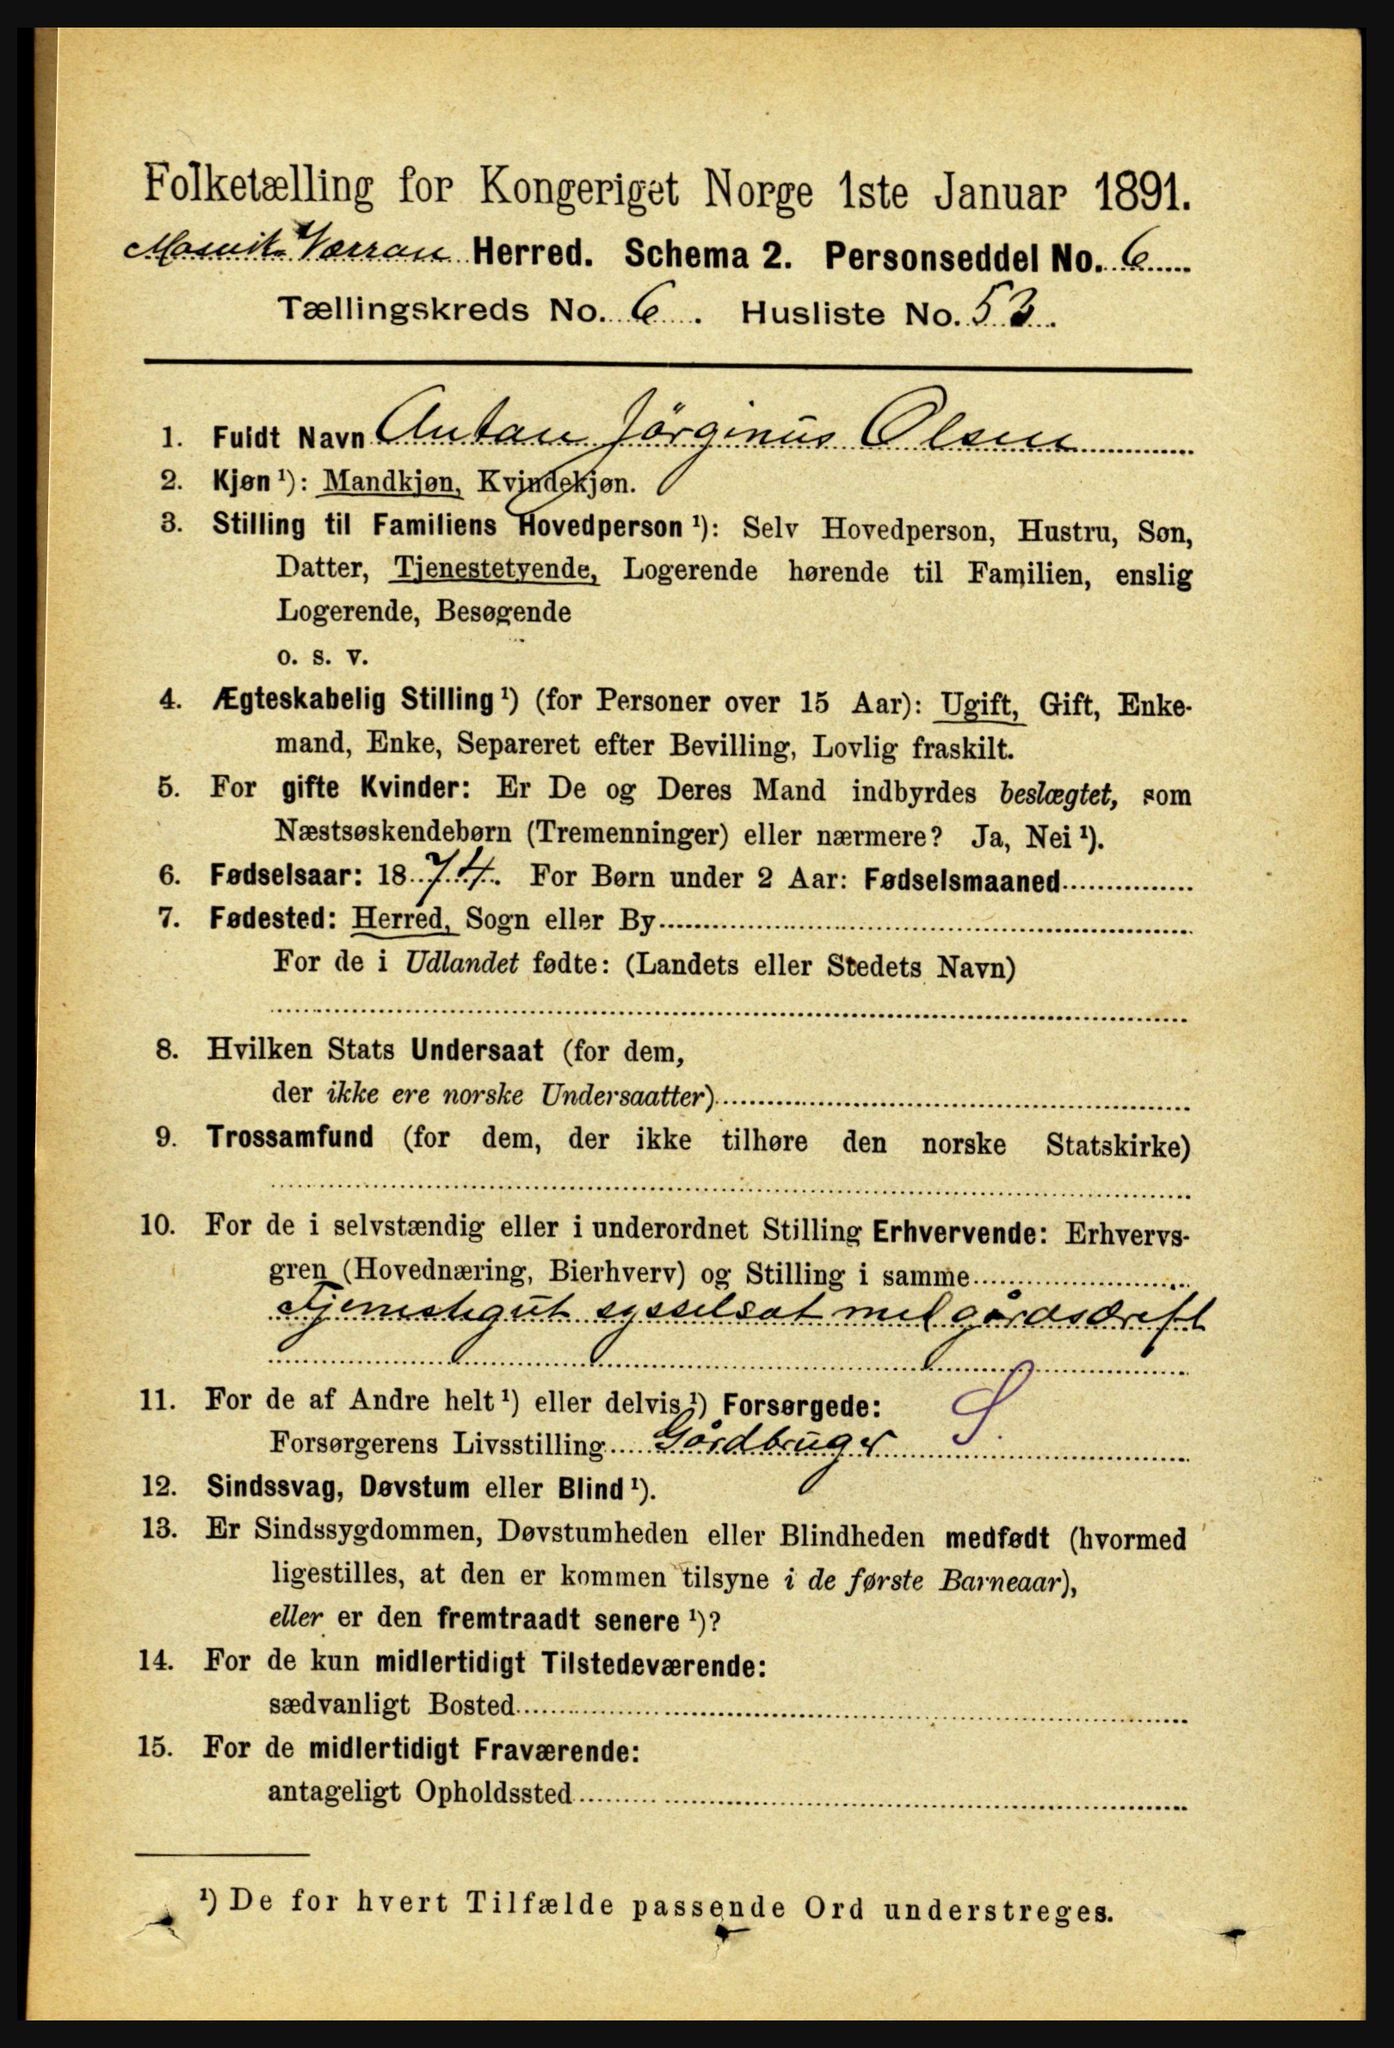 Folketælling for Kongeriget Norge 1ste Januar 1891.
Mosvik Værran Herred. Schema 2. Personseddel No. 6
Tællingskreds No. 6. Husliste No. 53.
1. Fuldt Navn Antan Jörginus Olsen
2. Kjøn ¹): Mandkjøn, Kvindekjøn.
3. Stilling til Familiens Hovedperson ¹): Selv Hovedperson, Hustru, Søn,
Datter, Tjenestetyende, Logerende hørende til Familien, enslig
Logerende, Besøgende
o. s. v.
4. Ægteskabelig Stilling ¹) (for Personer over 15 Aar): Ugift, Gift, Enke-
mand, Enke, Separeret efter Bevilling, Lovlig fraskilt.
5. For gifte Kvinder: Er De og Deres Mand indbyrdes beslægtet, som
Næstsøskendebørn (Tremenninger) eller nærmere? Ja, Nei ¹).
6. Fødselsaar: 1874. For Børn under 2 Aar: Fødselsmaaned
7. Fødested: Herred, Sogn eller By
For de i Udlandet fødte: (Landets eller Stedets Navn)
8. Hvilken Stats Undersaat (for dem,
der ikke ere norske Undersaatter)
9. Trossamfund (for dem, der ikke tilhøre den norske Statskirke)
10. For de i selvstændig eller i underordnet Stilling Erhvervende: Erhvervs-
gren (Hovednæring, Bierhverv) og Stilling i samme
Tjenestegut sysselsat med gårdsdrift
11. For de af Andre helt ¹) eller delvis ¹) Forsørgede: S.
Forsørgerens Livsstilling Gårdbruger
12. Sindssvag, Døvstum eller Blind ¹).
13. Er Sindssygdommen, Døvstumheden eller Blindheden medfødt (hvormed
ligestilles, at den er kommen tilsyne i de første Barneaar),
eller er den fremtraadt senere ¹)?
14. For de kun midlertidigt Tilstedeværende:
sædvanligt Bosted
15. For de midlertidigt Fraværende:
antageligt Opholdssted
¹) De for hvert Tilfælde passende Ord understreges.